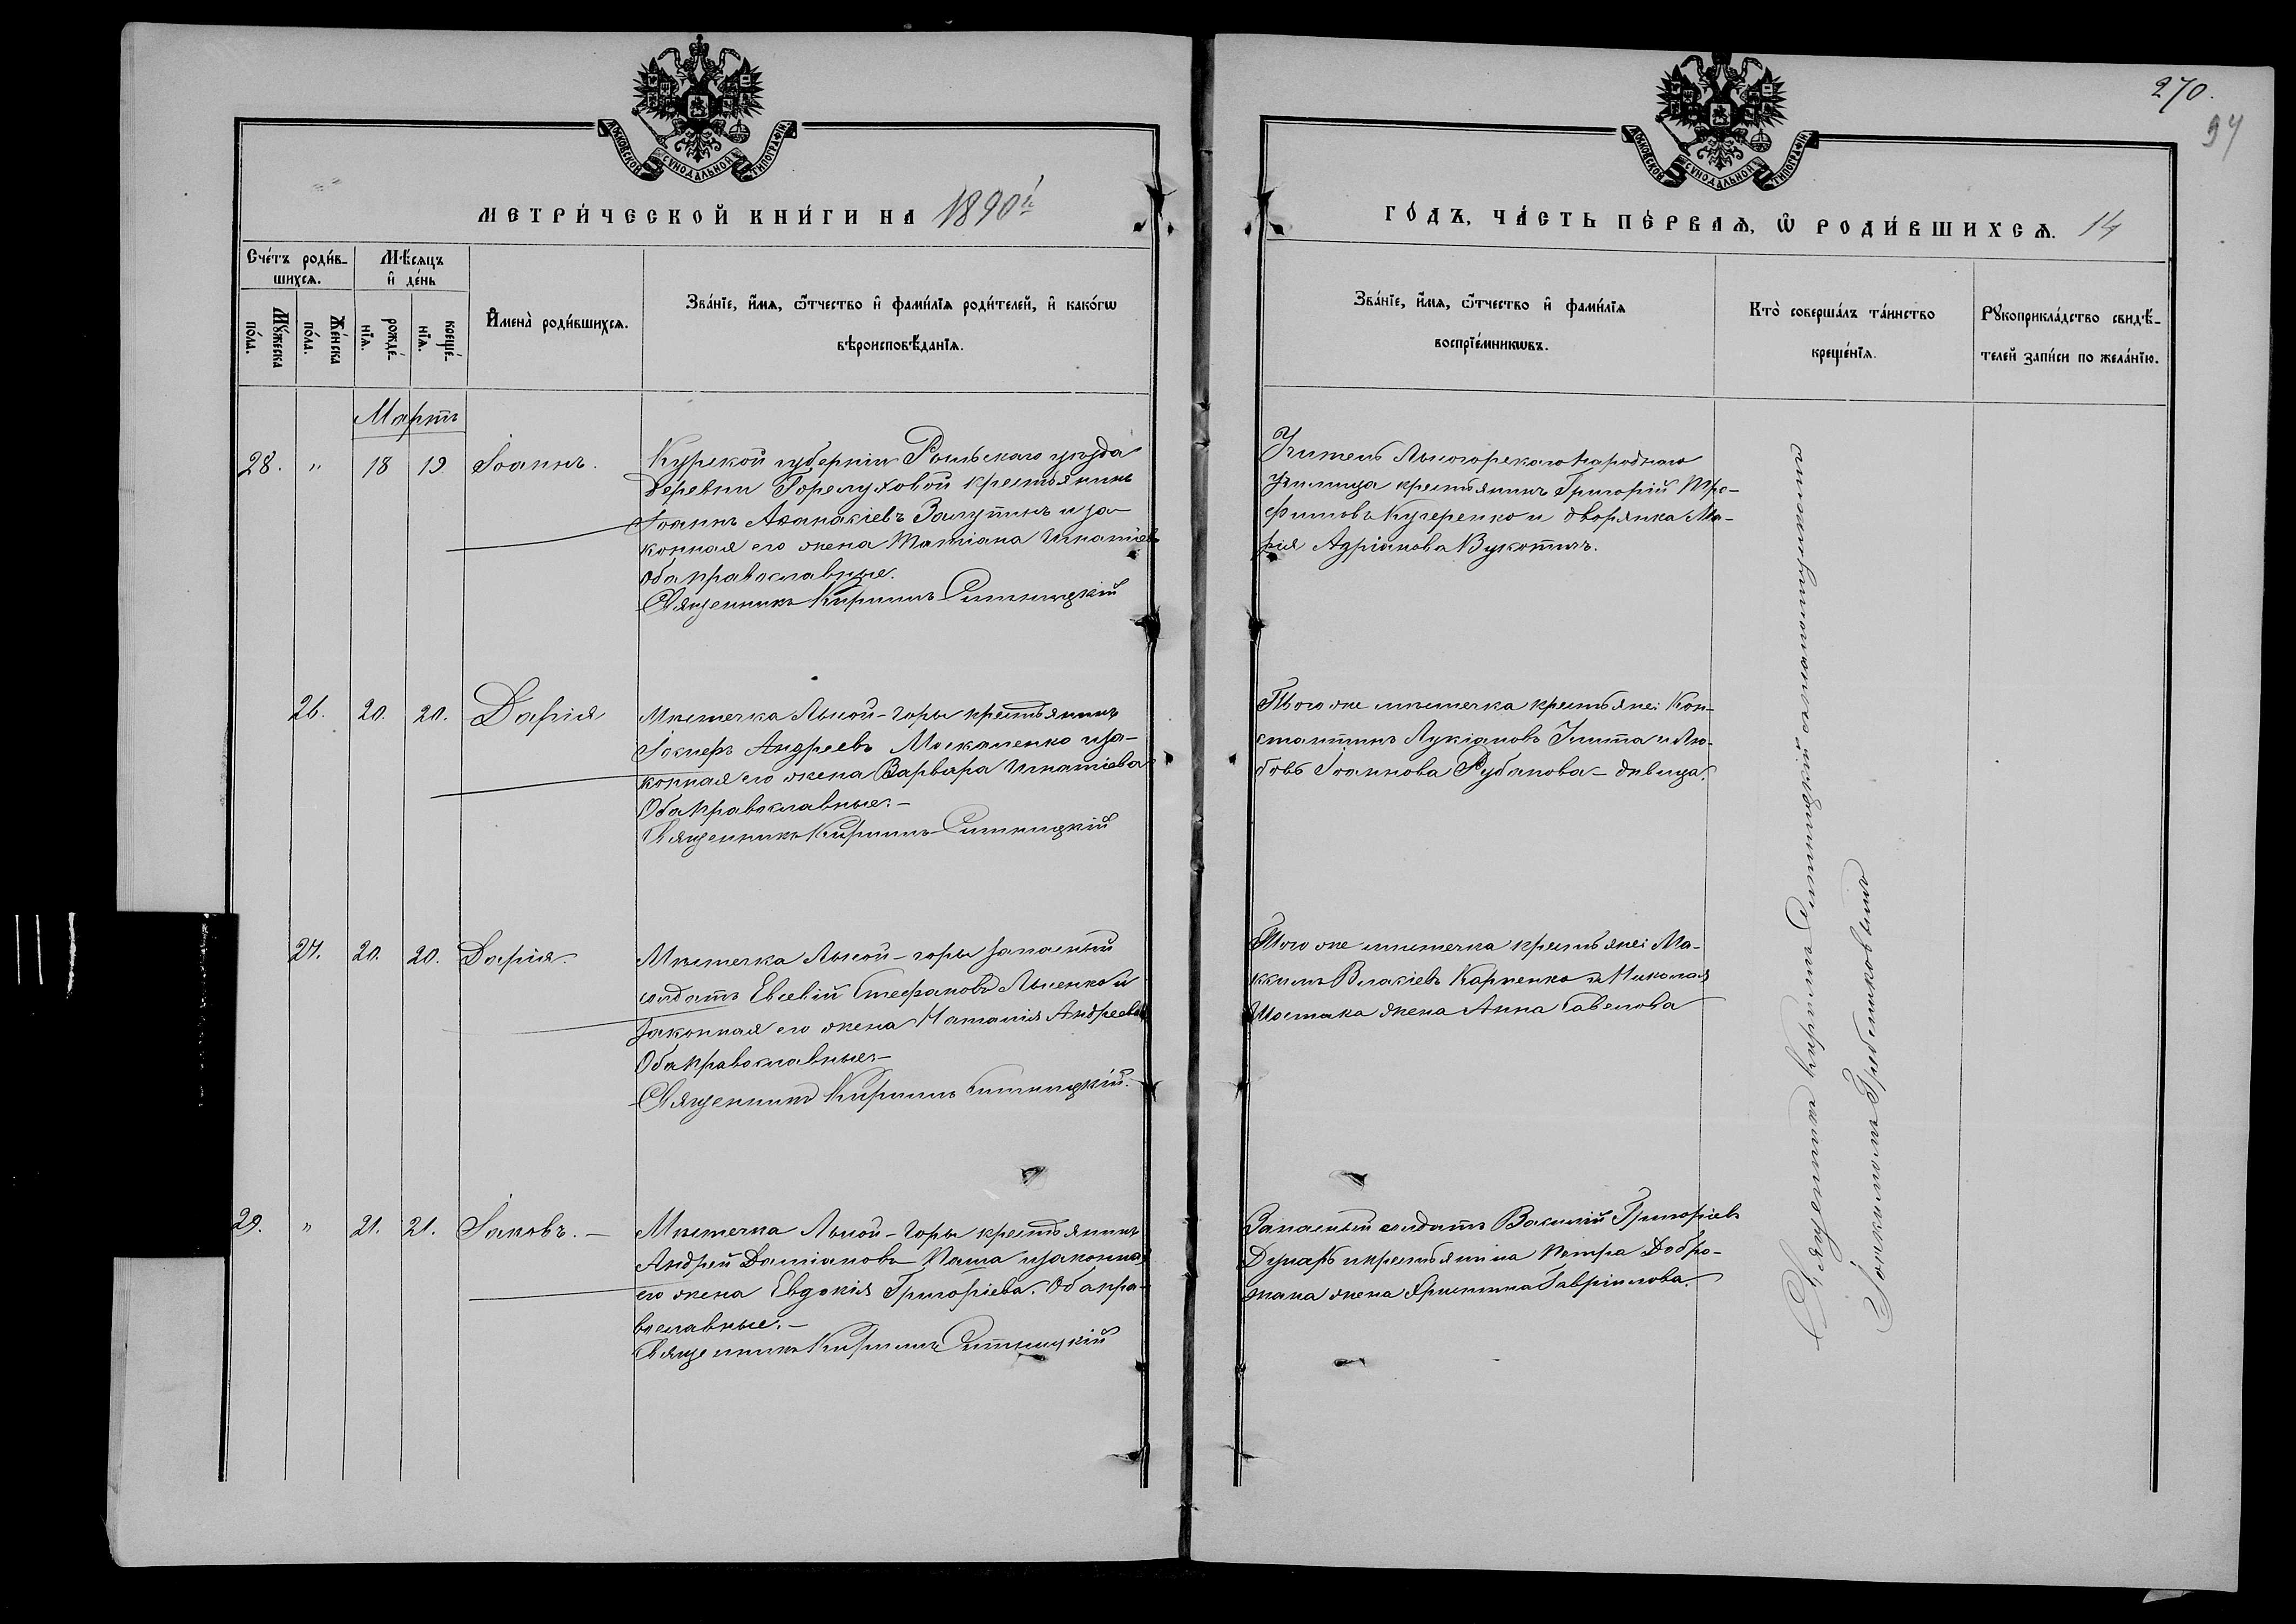 270.
94
МОСКОВСКОЙ СѴНОДАЛЬНОЙ ТИПОГРАФІИ.
МЕТРИ́ЧЕСКОЙ КНИ́ГИ НА 1890й
Сче́тъ роди́в-
шихсѧ.
Мꙋ́жеска
по́ла.
Же́нска
по́ла.
Мѣ́сѧцъ
и҆ де́нь
рожде́-
нїѧ.
креще́-
нїѧ.
И҆мена̀ роди́вшихсѧ.
Зва́нїе, и҆́мѧ, ѻ҆́тчество и҆ фами́лїѧ роди́телей, и҆ како́гѡ
вѣроисповѣ́данїѧ.
Мартъ
28. " 18 19 Іоаннъ.
Курской губерніи Рыльскаго уѣзда
деревни Горелуховой крестьянинъ
Іоаннъ Аѳанасіевъ Залутинъ и за-
конная его жена Татіана Игнатіева
оба православные.
Священникъ Кириллъ Ситницкій
26. 20. 20. Дарія
Мѣстечка Лысой-Горы крестьянинъ
Іосифъ Андреевъ Москаленко и за-
конная его жена Варвара Игнатіева
Оба православные.-
Священникъ Кириллъ Ситницкій
27. 20. 20. Дарія.
Мѣстечка Лысой-горы запасный
солдатъ Евсевій Стефановъ Лысенко и
законная его жена Наталія Андреева
Оба православные.-
Священникъ Кириллъ Ситницкій.
29. " 21. 21. Іаковъ.-
Мѣстечка Лысой-Горы крестьянинъ
Андрей Даміановъ Паша и законная
его жена Евдокія Григоріева. Оба пра-
вославные.-
Священникъ Кириллъ Ситницкій
МОСКОВСКОЙ СѴНОДАЛЬНОЙ ТИПОГРАФІИ.
ГО́ДЪ, ЧА́СТЬ ПЕ́РВАѦ, Ѡ҆ РОДИ́ВШИХСѦ. 14
Зва́нїе, и҆́мѧ, ѻ҆́тчество и҆ фами́лїѧ
воспрїе́мникѡвъ.
Кто̀ соверша́лъ та́инство
креще́нїѧ.
Рꙋкоприкла́дство свидѣ́-
телей за́писи по жела́нїю.
Учитель Лысогорскаго Народнаго
училища крестьянинъ Григорій Тро-
фимовъ Кучеренко и дворянка Ма-
рія Адріанова Вукотичъ.
Того же мѣстечка крестьяне: Кон-
стантинъ Лукіановъ Улита и Лю-
бовь Іоаннова Рубанова - дѣвица.
Того же мѣстечка крестьяне: Ма-
ксимъ Власіевъ Карпенко и Николая
Шостака жена Анна Савелова
Запасный солдатъ Василій Григоріевъ
Дударь и крестьянина Петра Добро-
жана жена Христина Гавріилова.
Священникъ Кириллъ Ситницкій съ псаломщикомъ
Іоакимомъ Гребинковымъ